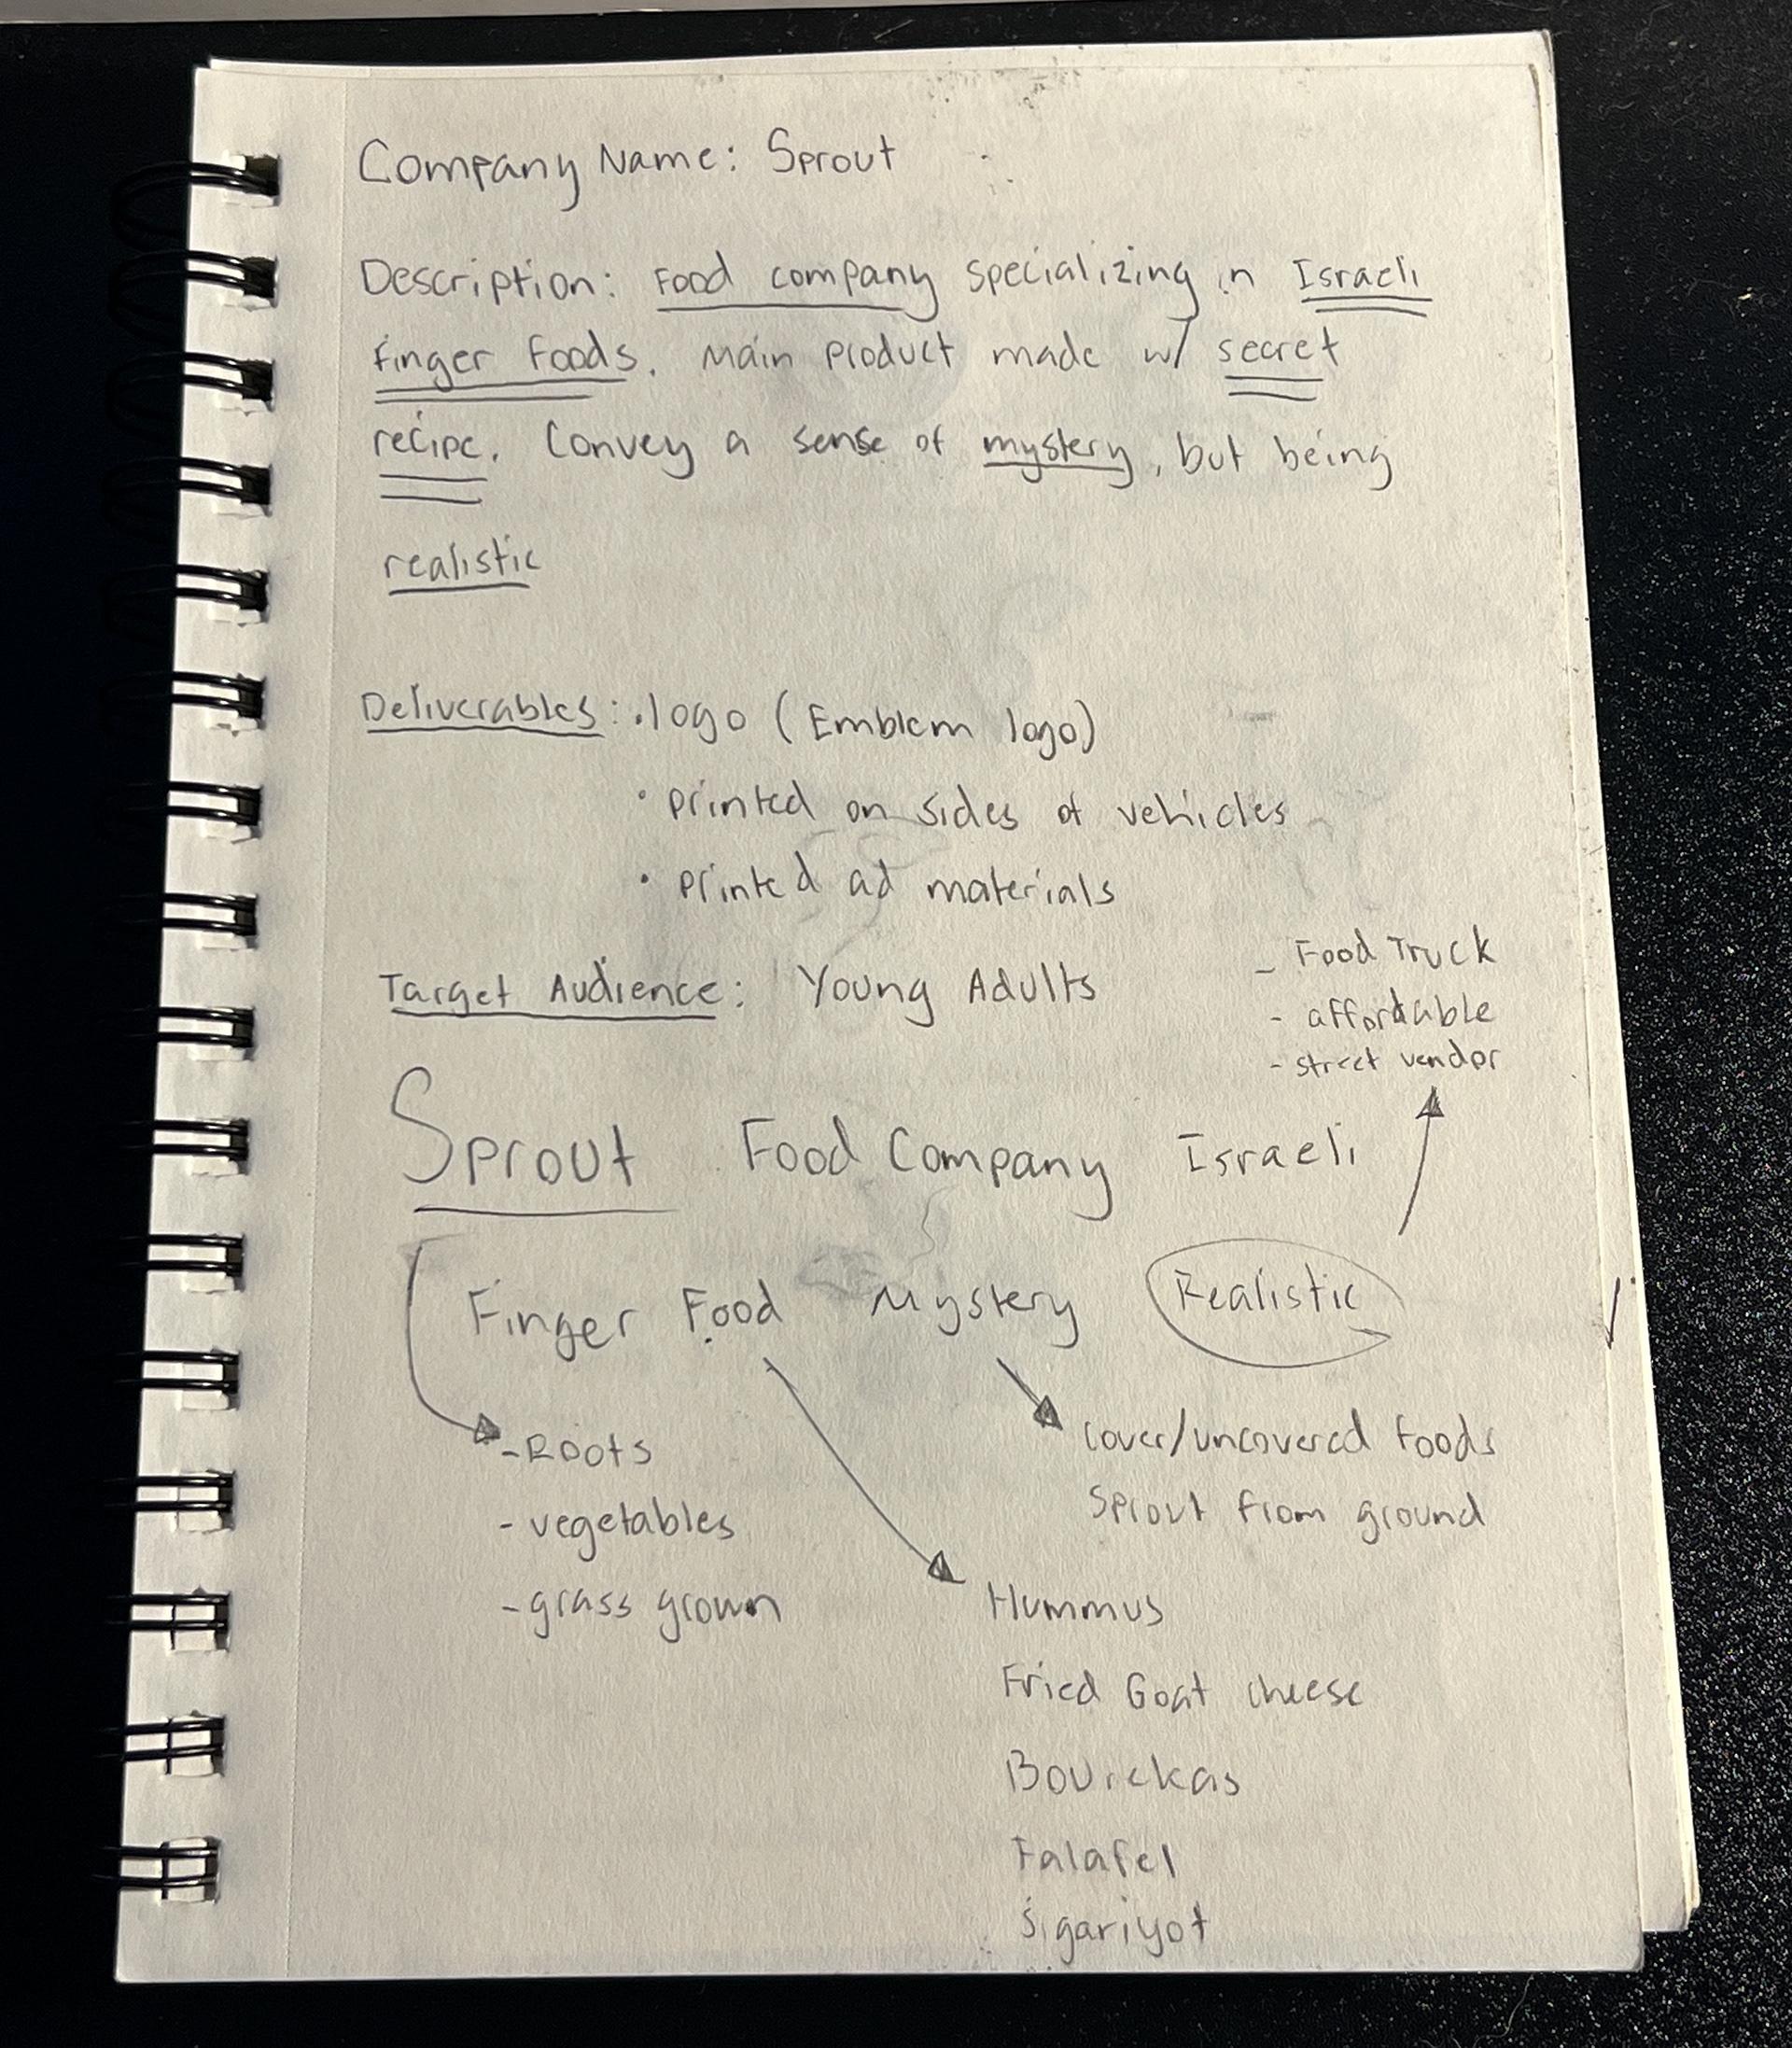 Company Name: Sprout
Description: Food company specializing in Israeli
finger foods. Main product made w/ secret
recipe. Convey a sense of mystery, but being
realistic
Deliverables: • logo (Emblem logo)
• printed on sides of vehicles
• printed ad materials
Target Audience: Young Adults
- Food Truck
- affordable
- street vendor
Sprout Food Company Israeli
Finger Food Mystery Realistic
- Roots
- vegetables
- grass grown
Cover/uncovered foods
Sprout from ground
Hummus
Fried Goat cheese
Bourekas
Falafel
Sigariyot